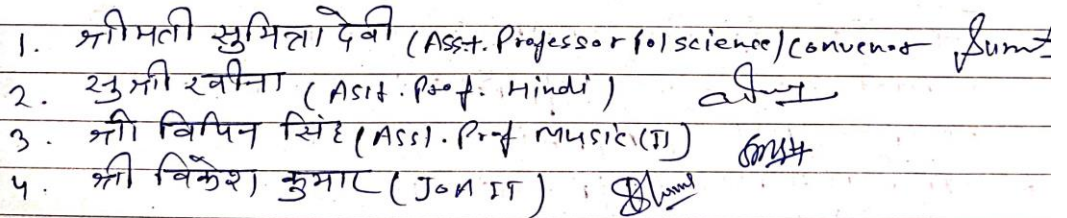 1. श्रीमती सुमित्रा देवी (Asst. Professor Pol science/convenor
2. सुश्री रवीना (Asst. Prof. Hindi)
3. श्री विपिन सिंह (Asst. Prof Music (I)
4. श्री विकेश कुमार (JOA IT)